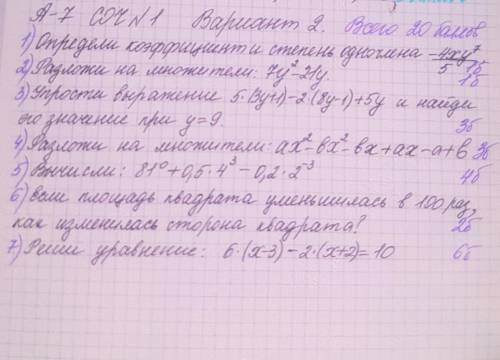 А-7 СОЧ №1 Вариант 2. Всего 20 баллов
1) Определи коэффициент и степень одночлена -4xy⁷/5 1б
2) Разложи на множители: 7y² - 21y. 1б
3) Упрости выражение 5·(3y+1)-2·(8y-1)+5y и найди
его значение при y=9. 3б
4) Разложи на множители: ax²-bx²-bx+ax-a+b 3б
5) Вычисли: 81⁰+0,5·4³-0,2·2⁻³ 4б
6) Если площадь квадрата уменьшилась в 100 раз,
как изменилась сторона квадрата? 2б
7) Реши уравнение: 6·(x-3)-2·(x+2)=10 6б